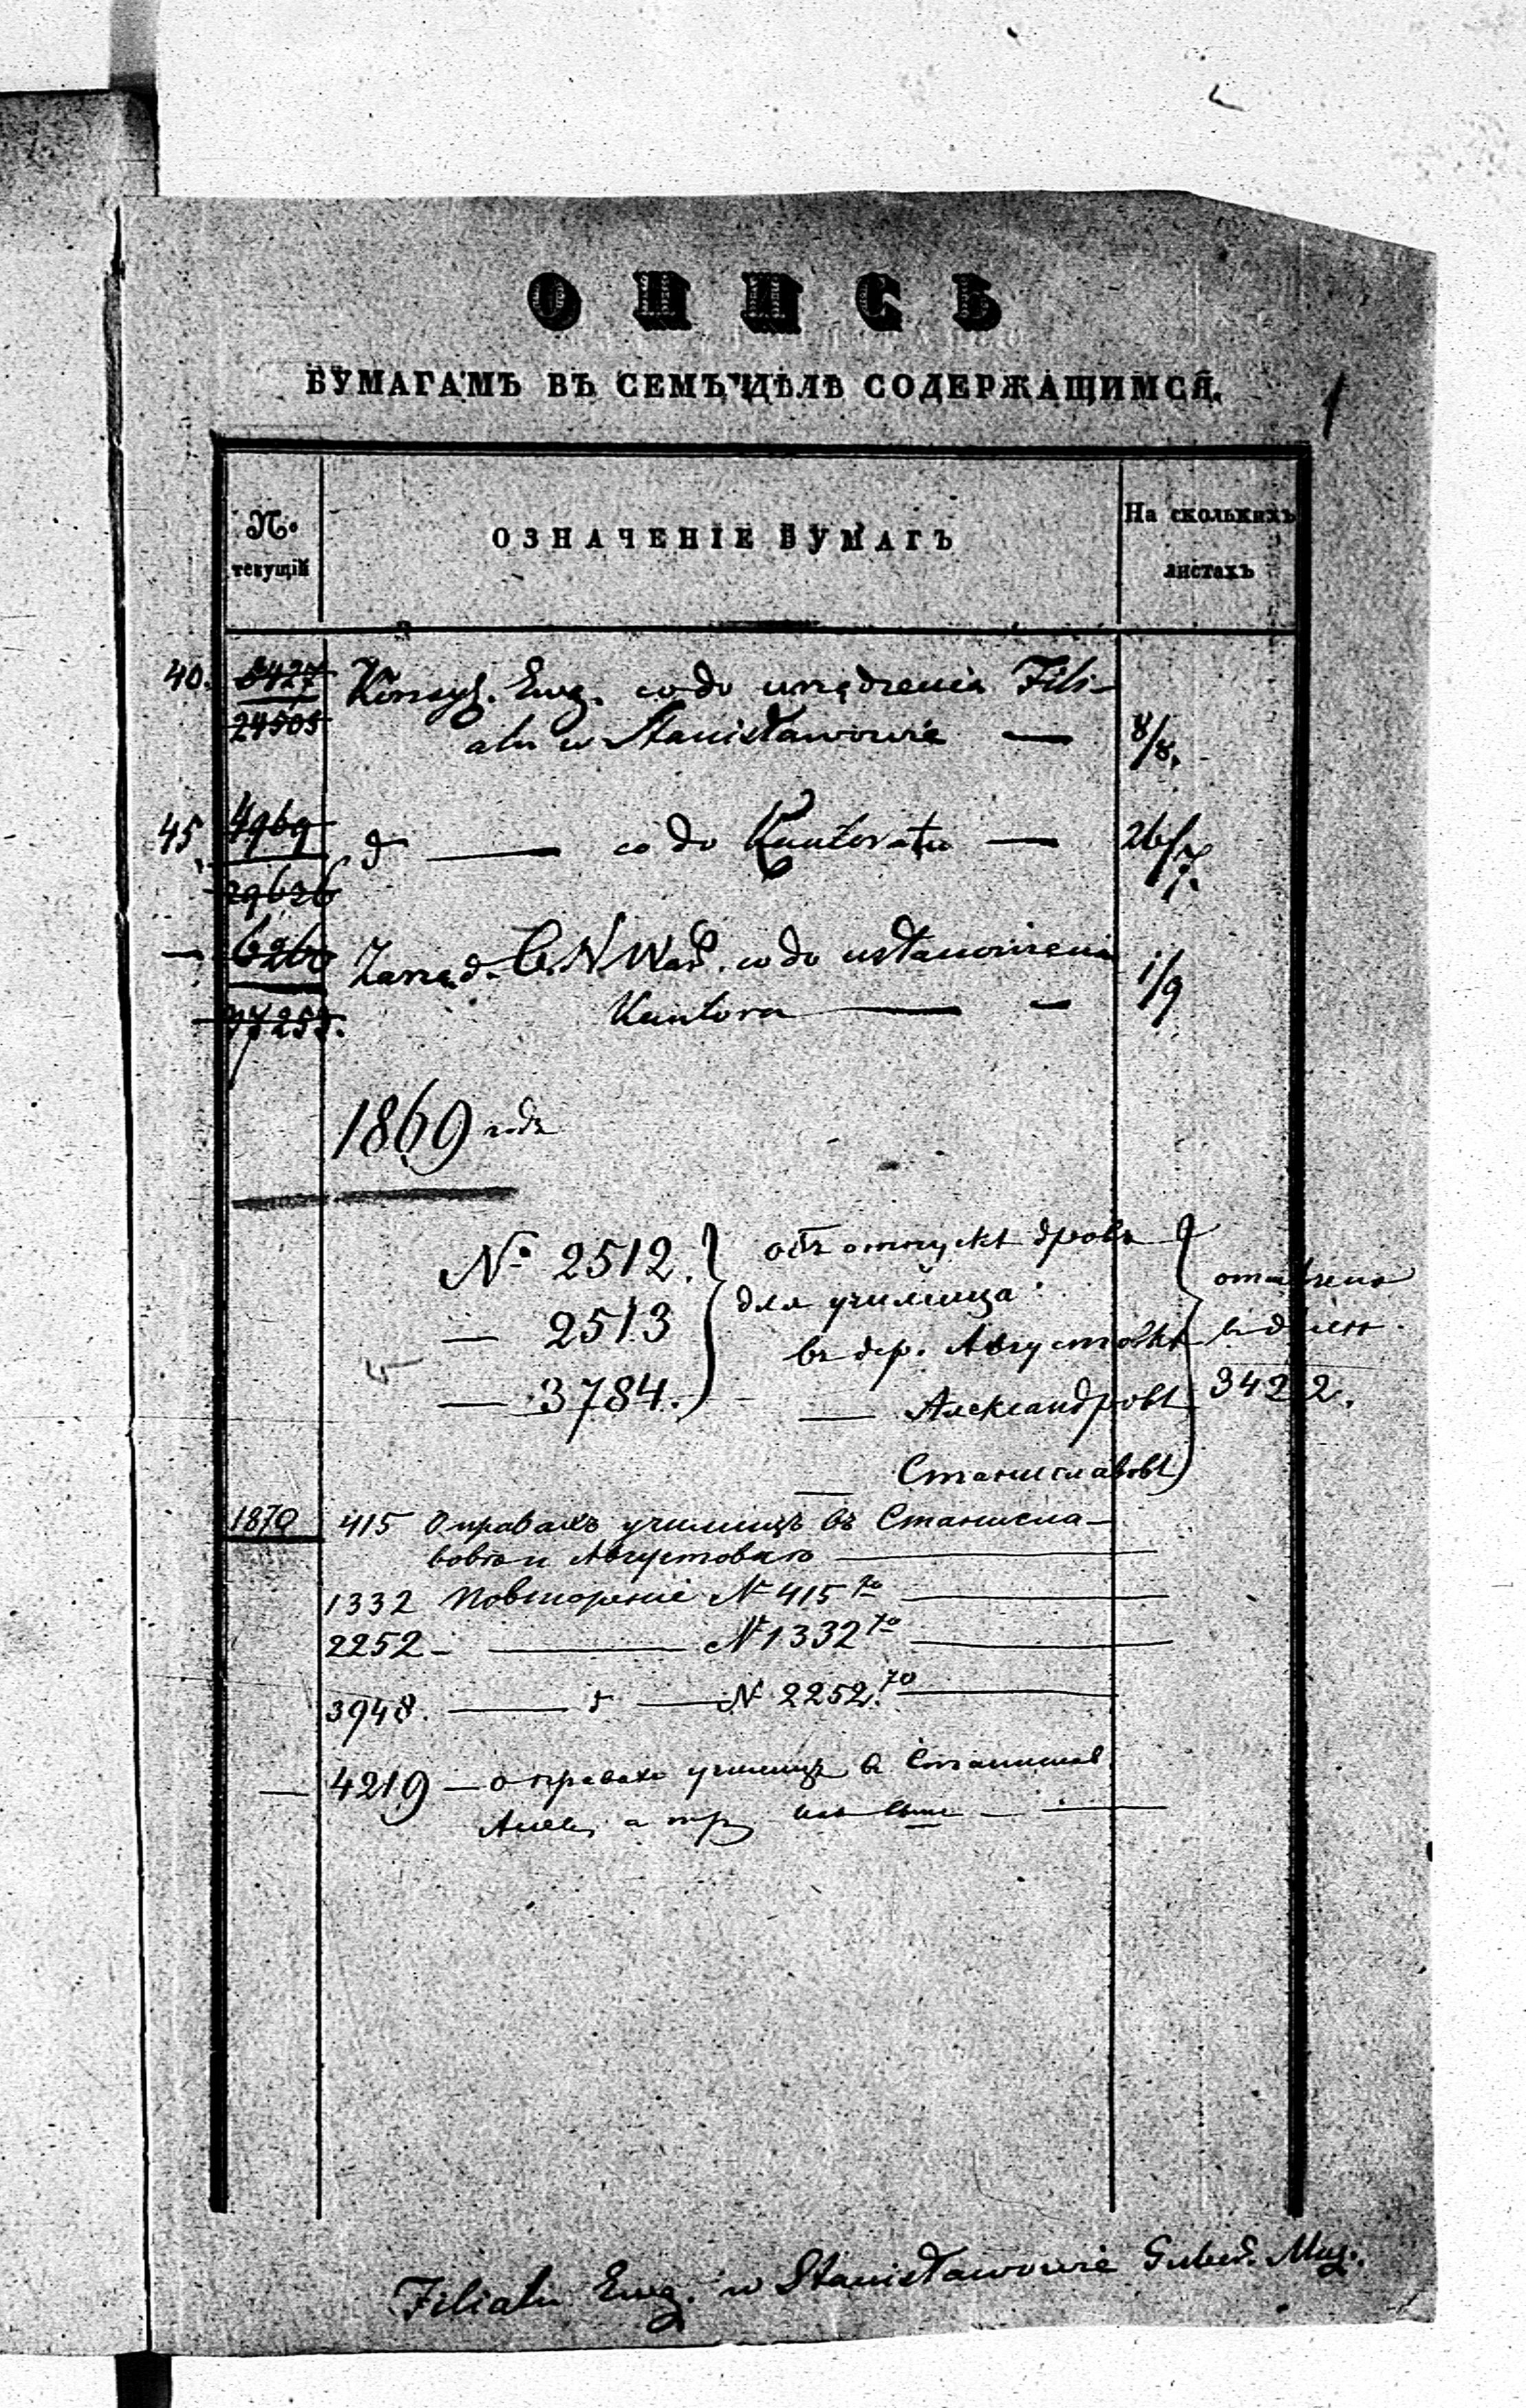 ОПИСЬ
БУМАГАМЪ ВЪ СЕМЪ ДѢЛѢ СОДЕРЖАЩИМСЯ.
1
№.
текущій
ОЗНАЧЕНІЕ БУМАГЪ
На сколькихъ
листахъ
40. 8427 Konsyst. Ewg. co do urządzenia Fili-
24505 ału w Stanisławowie — 8/8.
45 4969 d° — co do Kantoratu — 26/7.
29626
— Zarząd. O. N. War. co do ustanowienia 1/9
Kantora —
1869 года
№ 2512. объ отпускѣ дровъ
— 2513 для училища:
въ дер. Августовкѣ
— 3784. — Александровѣ
— Станиславовѣ
отмѣчено
3422.
1870 415 О правахъ училищъ въ Станисла-
вовѣ и Августовкѣ —
1332 Повтореніе № 415 70
2252 — № 1332 70
3948. — № 2252. 70
— 4219 — о правахъ училищъ в Станислав.
Filiału Ewg. w Stanisławowie Gubed. Mag.